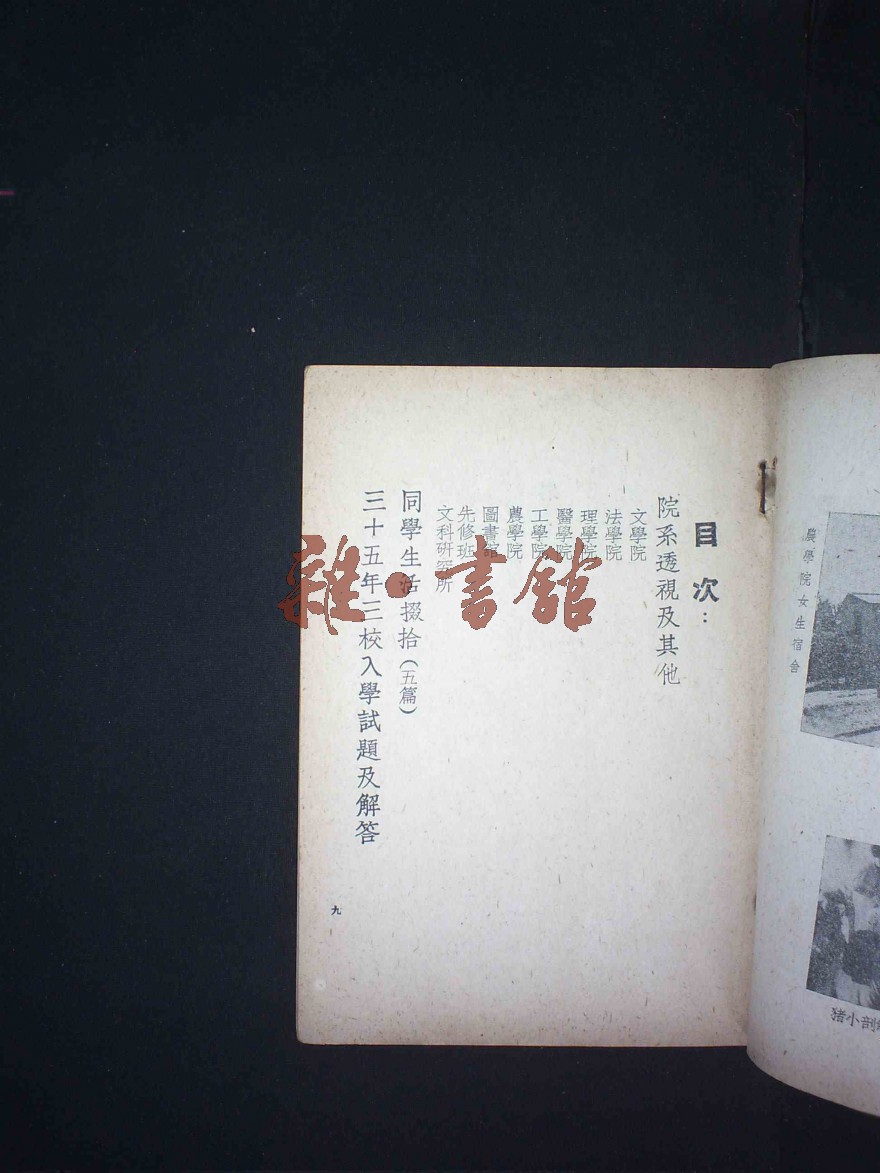 目次：
院系透視及其他
文學院
法學院
理學院
醫學院
工學院
農學院
圖書館
先修班
文科研究所
同學生活掇拾(五篇)
三十五年三校入學試題及解答
九
雜·書館
農學院女生宿舍